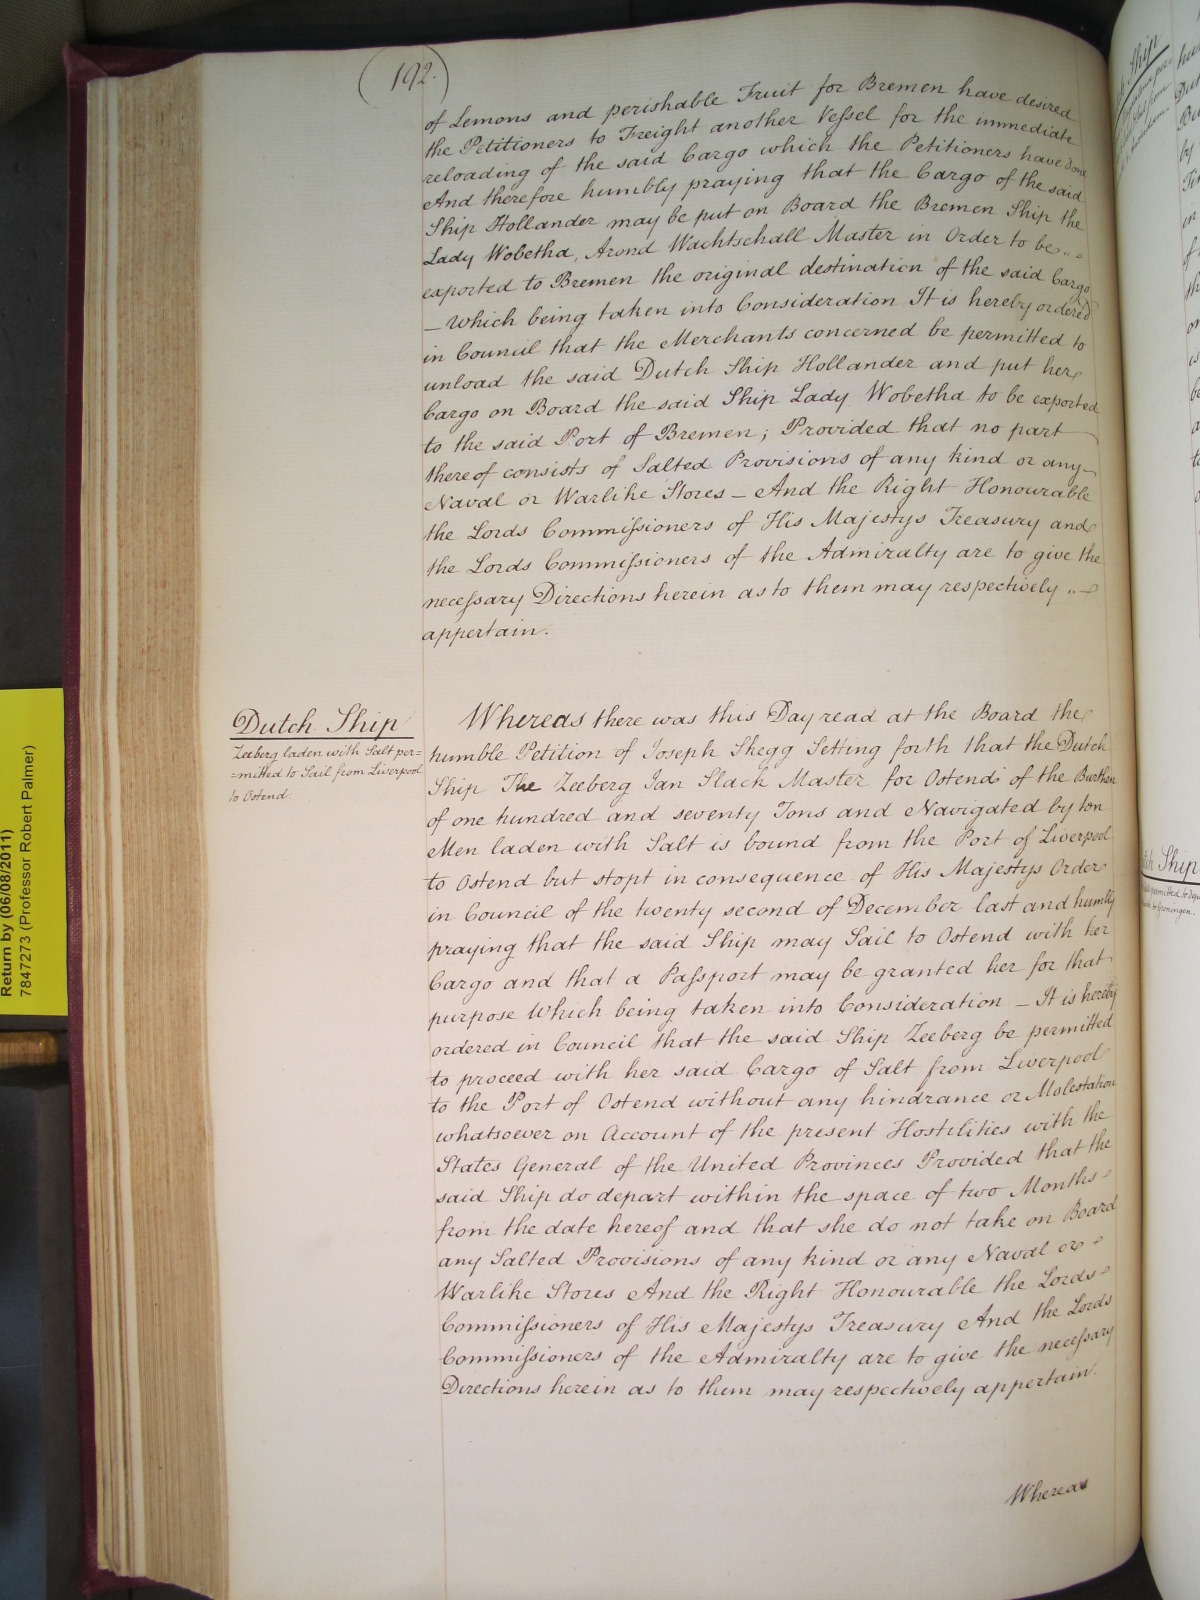 192.
of Lemons and perishable Fruit for Bremen have desired
the Petitioners to Freight another Vessel for the immediate
reloading of the said Cargo which the Petitioners have done
And therefore humbly praying that the Cargo of the said
Ship Hollander may be put on Board the Bremen Ship the
Lady Wobetha, Arond Wachtschall Master in Order to be
exported to Bremen the original destination of the said Cargo
– Which being taken into Consideration It is hereby ordered
in Council that the Merchants concerned be permitted to
unload the said Dutch Ship Hollander and put her
Cargo on Board the said Ship Lady Wobetha to be exported
to the said Port of Bremen; Provided that no part
thereof consists of Salted Provisions of any kind or any
Naval or Warlike Stores – And the Right Honourable
the Lords Commissioners of His Majestys Treasury and
the Lords Commissioners of the Admiralty are to give the
necessary Directions herein as to them may respectively
appertain.
Dutch Ship
Zeeberg laden with Salt per=
=mitted to Sail from Liverpool
to Ostend
Whereas there was this Day read at the Board the
humble Petition of Joseph Shegg Setting forth that the Dutch
Ship The Zeeberg Jan Slack Master for Ostend of the Burthen
of one hundred and seventy Tons and Navigated by ten
Men laden with Salt is bound from the Port of Liverpool
to Ostend but stopt in consequence of His Majestys Order
in Council of the twenty second of December last and humbly
praying that the said Ship may Sail to Ostend with her
Cargo and that a Passport may be granted her for that
purpose Which being taken into Consideration – It is hereby
ordered in Council that the said Ship Zeeberg be permitted
to proceed with her said Cargo of Salt from Liverpool
to the Port of Ostend without any hindrance or Molestation
whatsoever on Account of the present Hostilities with the
States General of the United Provinces Provided that the
said Ship do depart within the space of two Months
from the date hereof and that she do not take on Board
any Salted Provisions of any kind or any Naval or
Warlike Stores And the Right Honourable the Lords
Commissioners of His Majestys Treasury And the Lords
Commissioners of the Admiralty are to give the necessary
Directions herein as to them may respectively appertain.
Whereas
Return by (06/08/2011)
7847273 (Professor Robert Palmer)
Ship